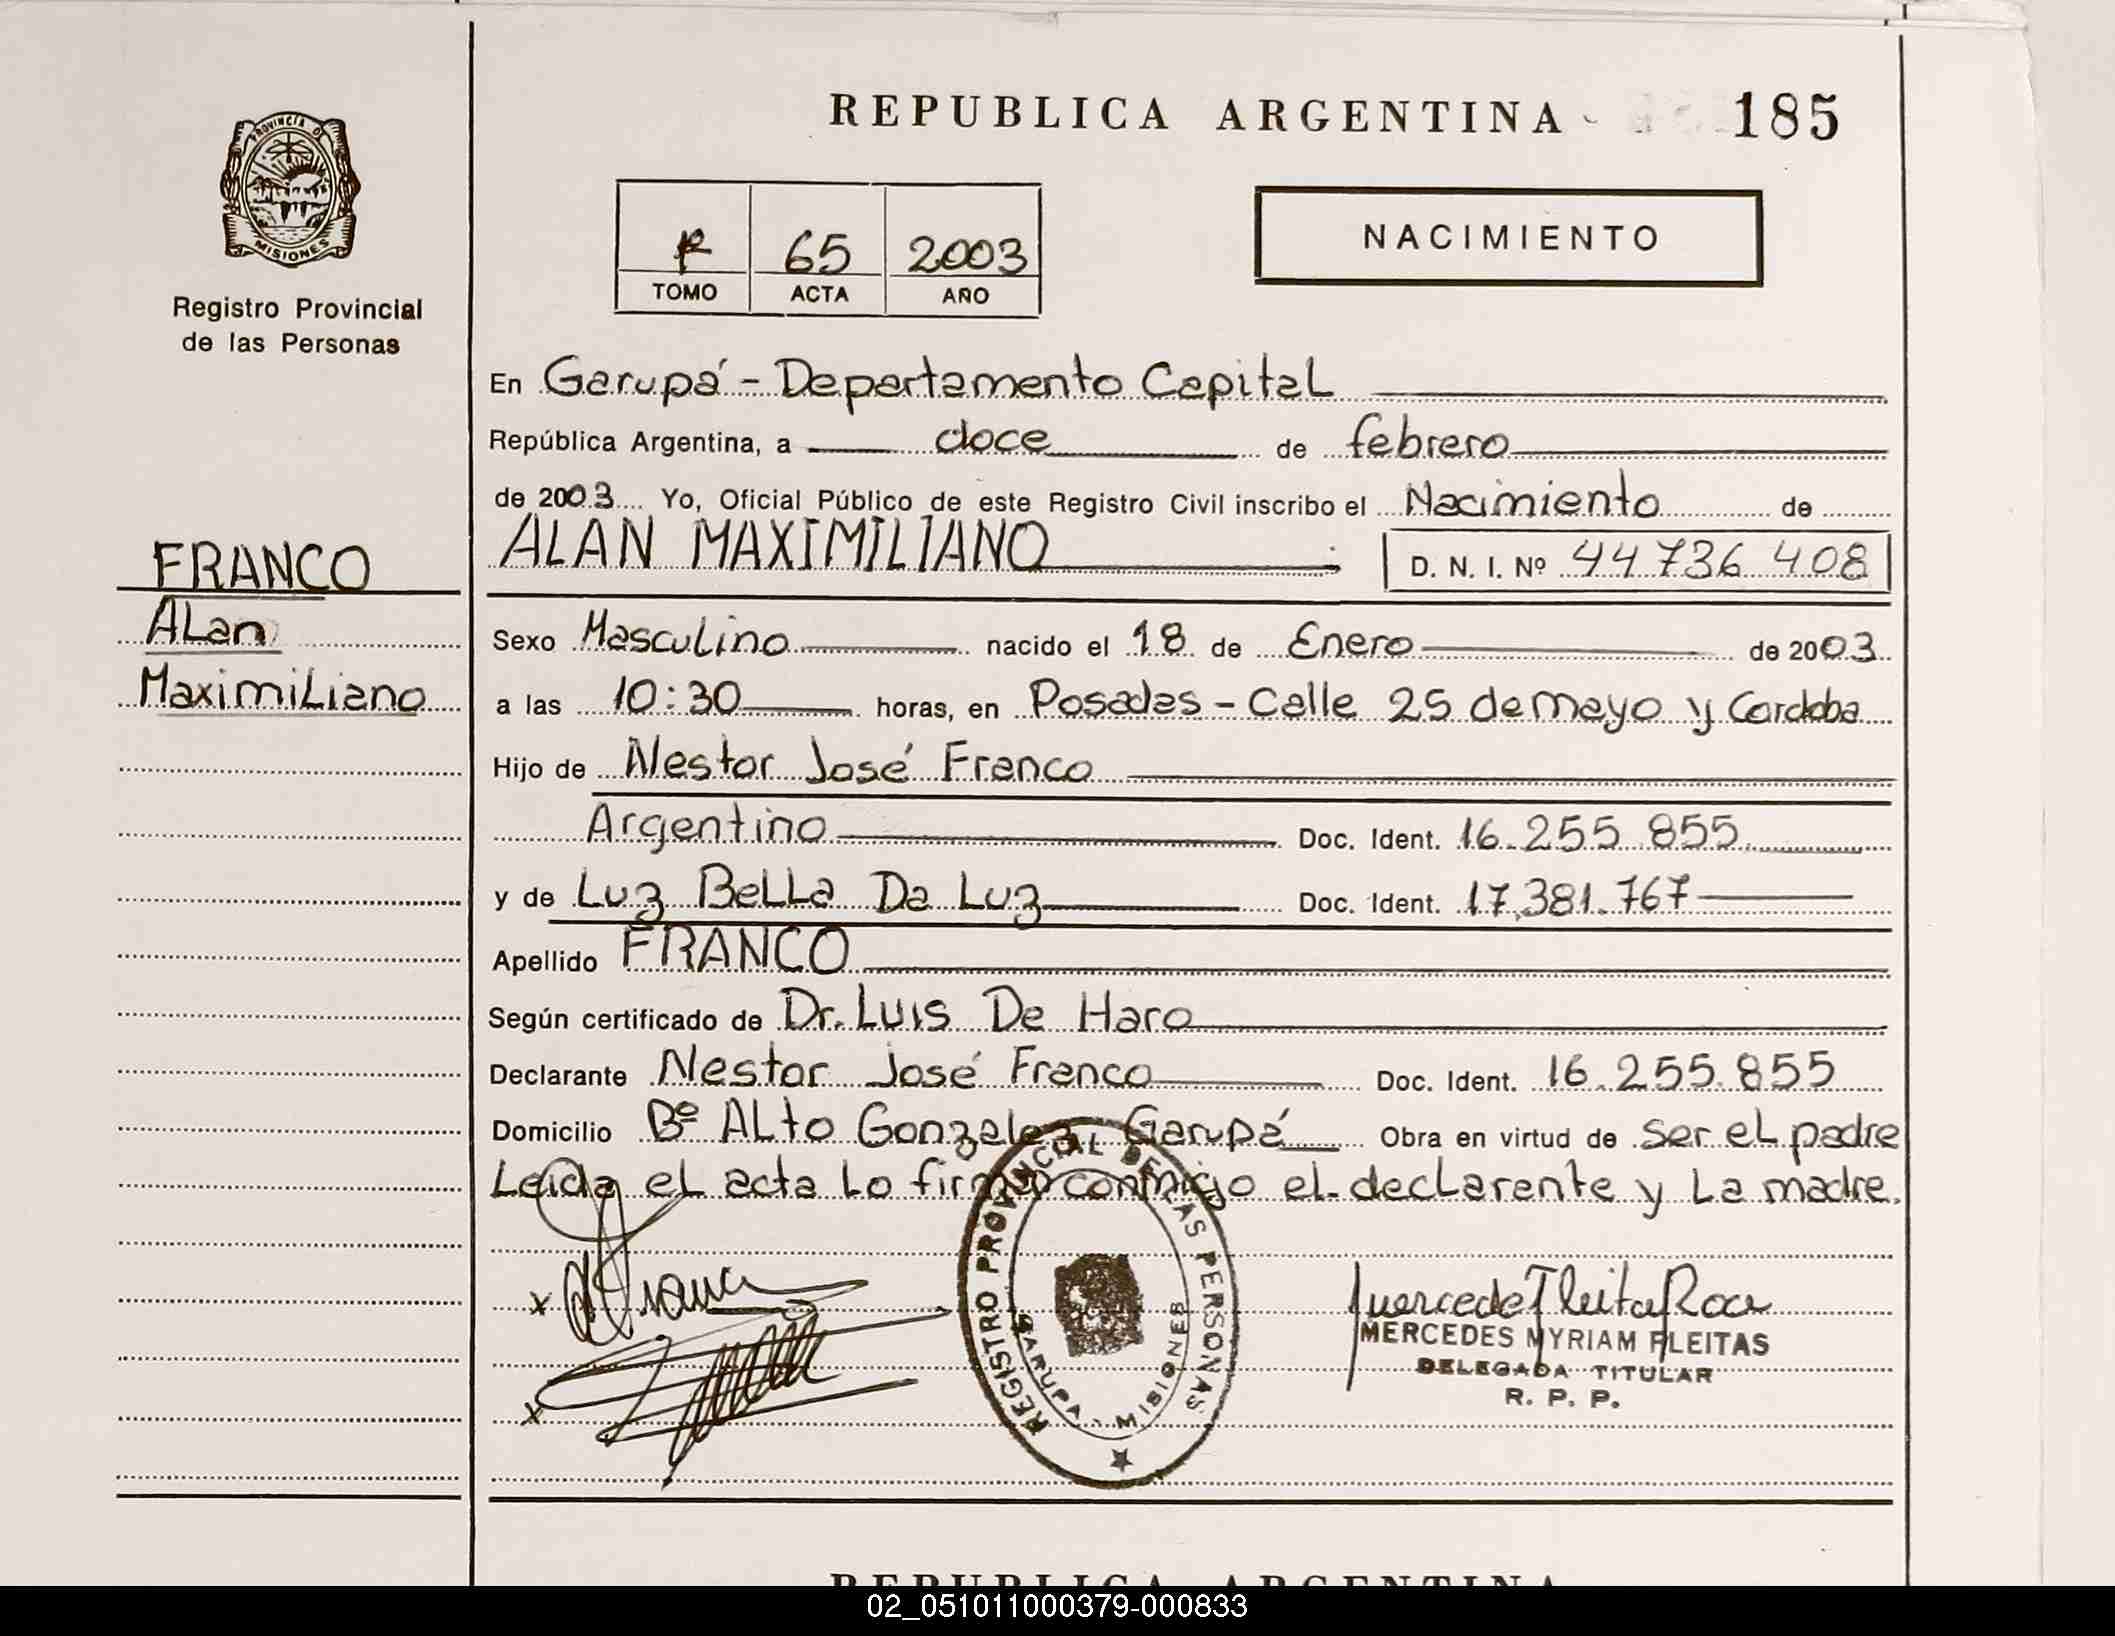 REPUBLICA ARGENTINA 185
PROVINCIA DE
MISIONES
Registro Provincial
de las Personas
65 2003
TOMO ACTA AÑO
NACIMIENTO
En Garupá - Departamento Capital
República Argentina, a doce de febrero
de 2003 Yo, Oficial Público de este Registro Civil inscribo el Nacimiento de
ALAN MAXIMILIANO D. N. I. Nº 44736408
FRANCO
Alan
Maximiliano
Sexo Masculino nacido el 18 de Enero de 2003
a las 10:30 horas, en Posadas - Calle 25 de mayo y Cordoba
Hijo de Nestor José Franco
Argentino Doc. Ident. 16.255.855
y de Luz Bella Da Luz Doc. Ident. 17.381.767
Apellido FRANCO
Según certificado de Dr. Luis De Haro
Declarante Nestor José Franco Doc. Ident. 16.255.855
Domicilio Bº Alto Gonzalez Garupá Obra en virtud de ser el padre
Leida el acta lo firman conmigo el declarante y la madre.
REGISTRO PROVINCIAL DE LAS PERSONAS
GARUPA - MISIONES
MERCEDES MYRIAM FLEITAS
DELEGADA TITULAR
R. P. P.
REPUBLICA ARGENTINA
02_051011000379-000833